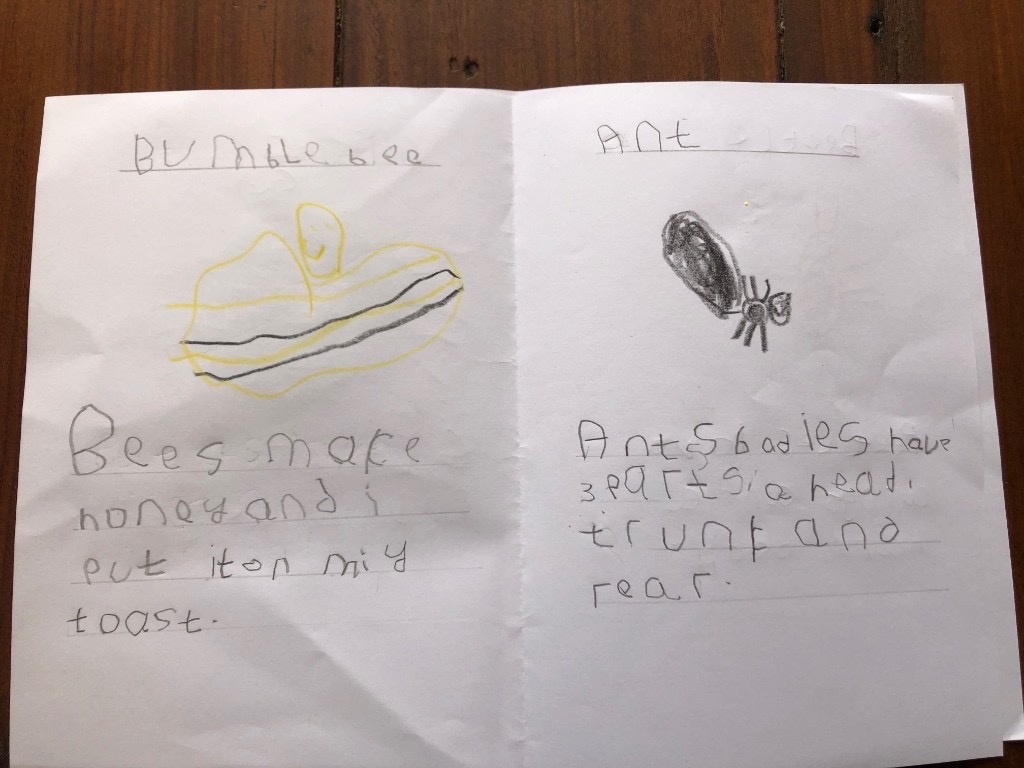 BUmbLe bee
Bees make
honey and i
put it on miy
toast.
Ant
Ants badies have
3 parts: a head,
trunk and
rear.